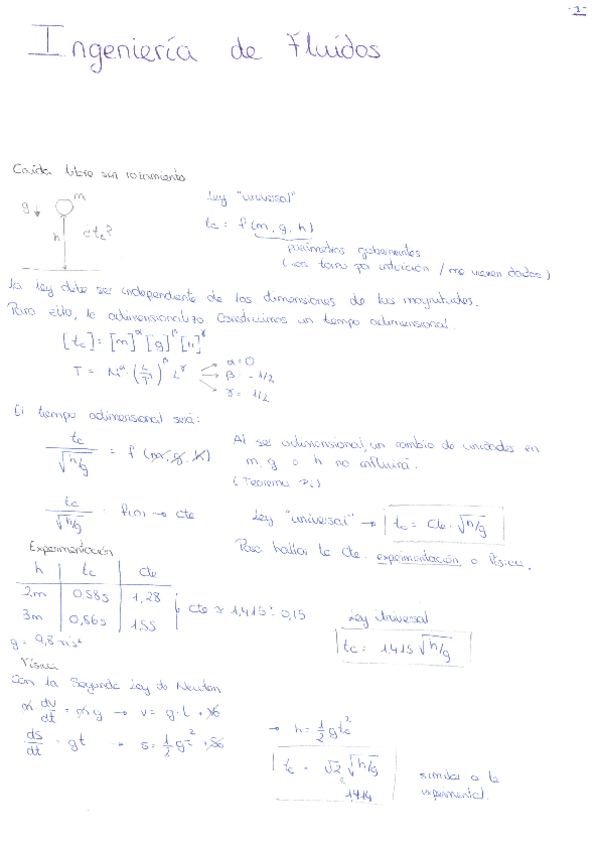 -1-
Ingeniería de Fluidos
Caída libre sin rozamiento
Ley "universal"
m
g ↓
h
¿tc?
tc = f(m, g, h)
parámetros gobernantes
(los tomo por intuición / me vienen dados)
La ley debe ser independiente de las dimensiones de las magnitudes.
Para ello, lo adimensionalizo. Construimos un tiempo adimensional.
[tc] = [m]^α [g]^β [h]^γ
T = M^α · (L/T²)^β L^γ
α = 0
β = -1/2
γ = 1/2
El tiempo adimensional será:
tc / √(h/g) = f(m, g, h)
Al ser adimensional, un cambio de unidades en
m, g o h no influirá.
(Teorema Pi)
tc / √(h/g) = → cte
Ley "universal" → tc = cte · √(h/g)
Para hallar la cte. experimentación o física.
Experimentación
h | tc | cte
2m | 0,58s | 1,28
3m | 0,86s | 1,55
cte ≈ 1,415 ± 0,15
g = 9,8 m/s²
Ley Universal
tc = 1,415 √(h/g)
Física
Con la Segunda Ley de Newton
m dv/dt = m g → v = g·t + v0
ds/dt = gt → s = 1/2 gt² + s0
→ h = 1/2 g tc²
tc = √2 √(h/g)
1,414
similar a la
experimental.